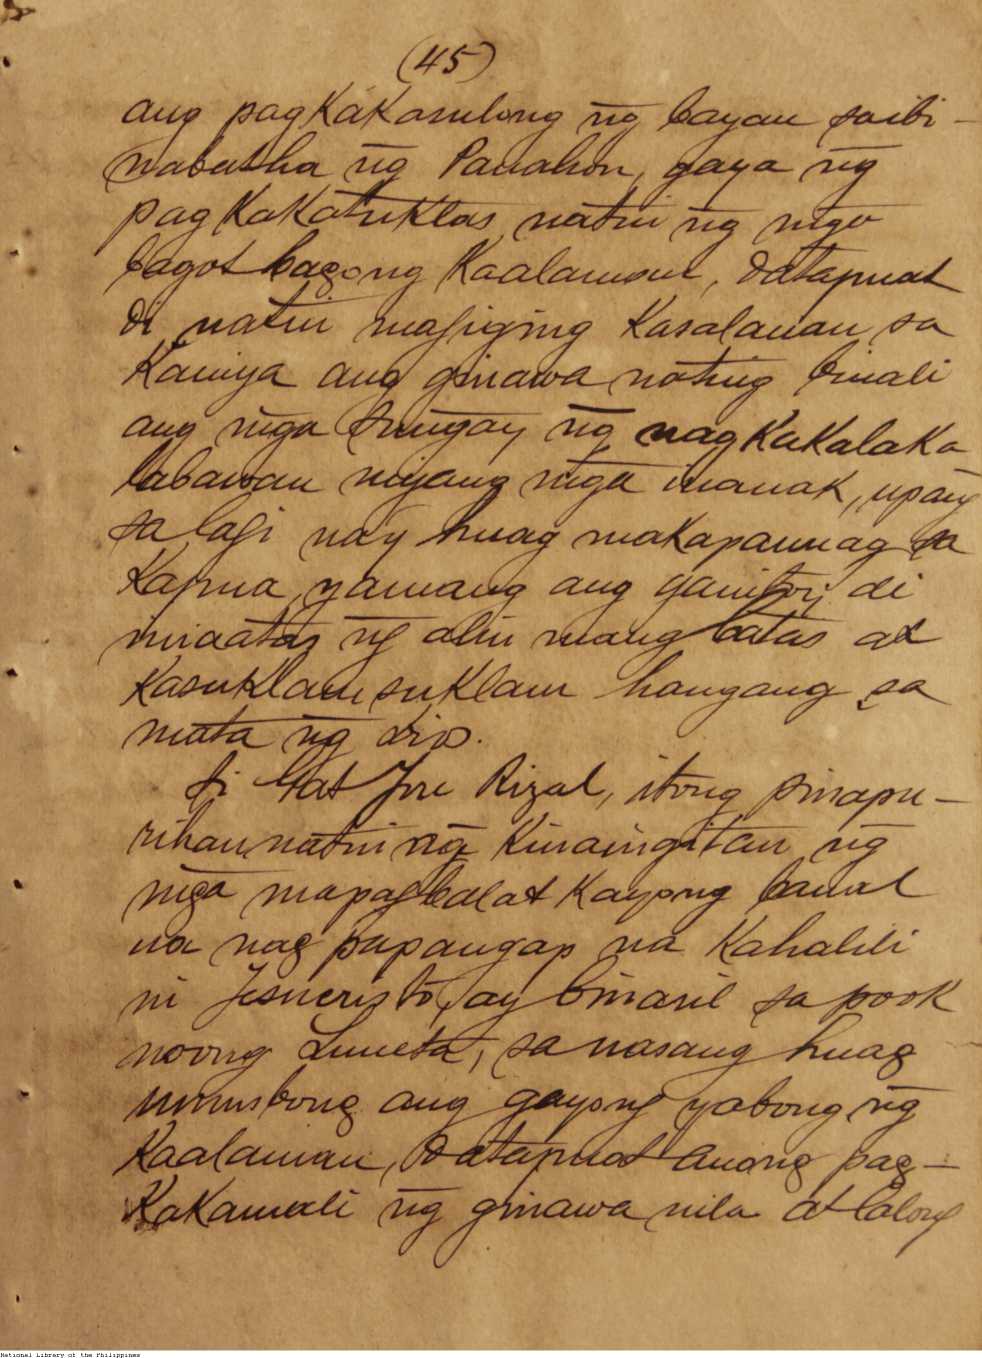 (45)
ang pagkákasulong ng̃ bayan sa ibi-
nabatha ng̃ Panahon, gaya ng̃
pagkakátuklas natin ng̃ mga
bagot bagong kaalaman, datapuat
di natin magiging kasalanan sa
kaniya ang ginawa nating binali
ang mg̃a sung̃ay ng̃ nagkakalaka
labawan niyang mg̃a inanak, upang
sa lagi na'y huag makapanuag sa
kapua, yamang ang ganito'y di
iniaatas ng̃ alin mang batas at
kasuklam suklam hangang sa
mata ng̃ Dios.
Si Gat Jose Rizal, itong sinapu-
rihan natin na kinaing̃itan ng̃
mg̃a mapagbalat kayong banal
na nag papangap na kahalili
ni Jesucristo, ay binaril sa pook
noong Luneta, sa nasang huag
umusbong ang gayong yabong ng̃
kaalaman, Datapuat anong pag-
kakamali ng̃ ginawa nila at lalong
National Library of the Philippines